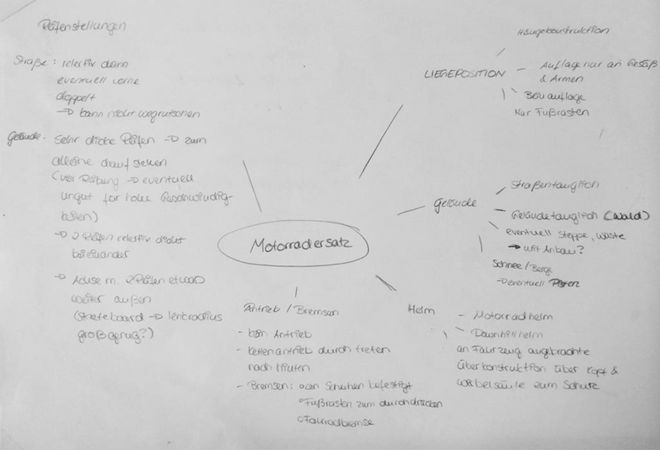 Reifenstellungen
Straße: relativ dünn
eventuell vorne
doppelt
→ kann nicht wegrutschen
Gelände: Sehr dicke Reifen → zum
alleine drauf stehen
(viel Reibung → eventuell
ungut für hohe Geschwindig-
keiten)
→ 2 Reifen relativ dicht
beieinander
→ Achse m. 2 Reifen etwas
weiter außen
(skateboard → lenkradius
groß genug?)
Motorradersatz
Hängekonstruktion
LIEGEPOSITION
- Auflage nur an Gesäß
& Armen
Beinauflage
Nur Fußrasten
Gelände
Straßentauglich
Geländetauglich (Wald)
eventuell Steppe, Wüste
→ mit Anbau?
Schnee / Berge
→ eventuell
Antrieb / Bremsen
- kein Antrieb
- Kettenantrieb durch treten
nach hinten
- Bremsen: o an Schuhen befestigt
o Fußrasten zum durchdrücken
o Fahrradbremse
Helm
- Motorradhelm
- Downhillhelm
an Fahrzeug angebrachte
Überkonstruktion über Kopf &
Wirbelsäule zum Schutz